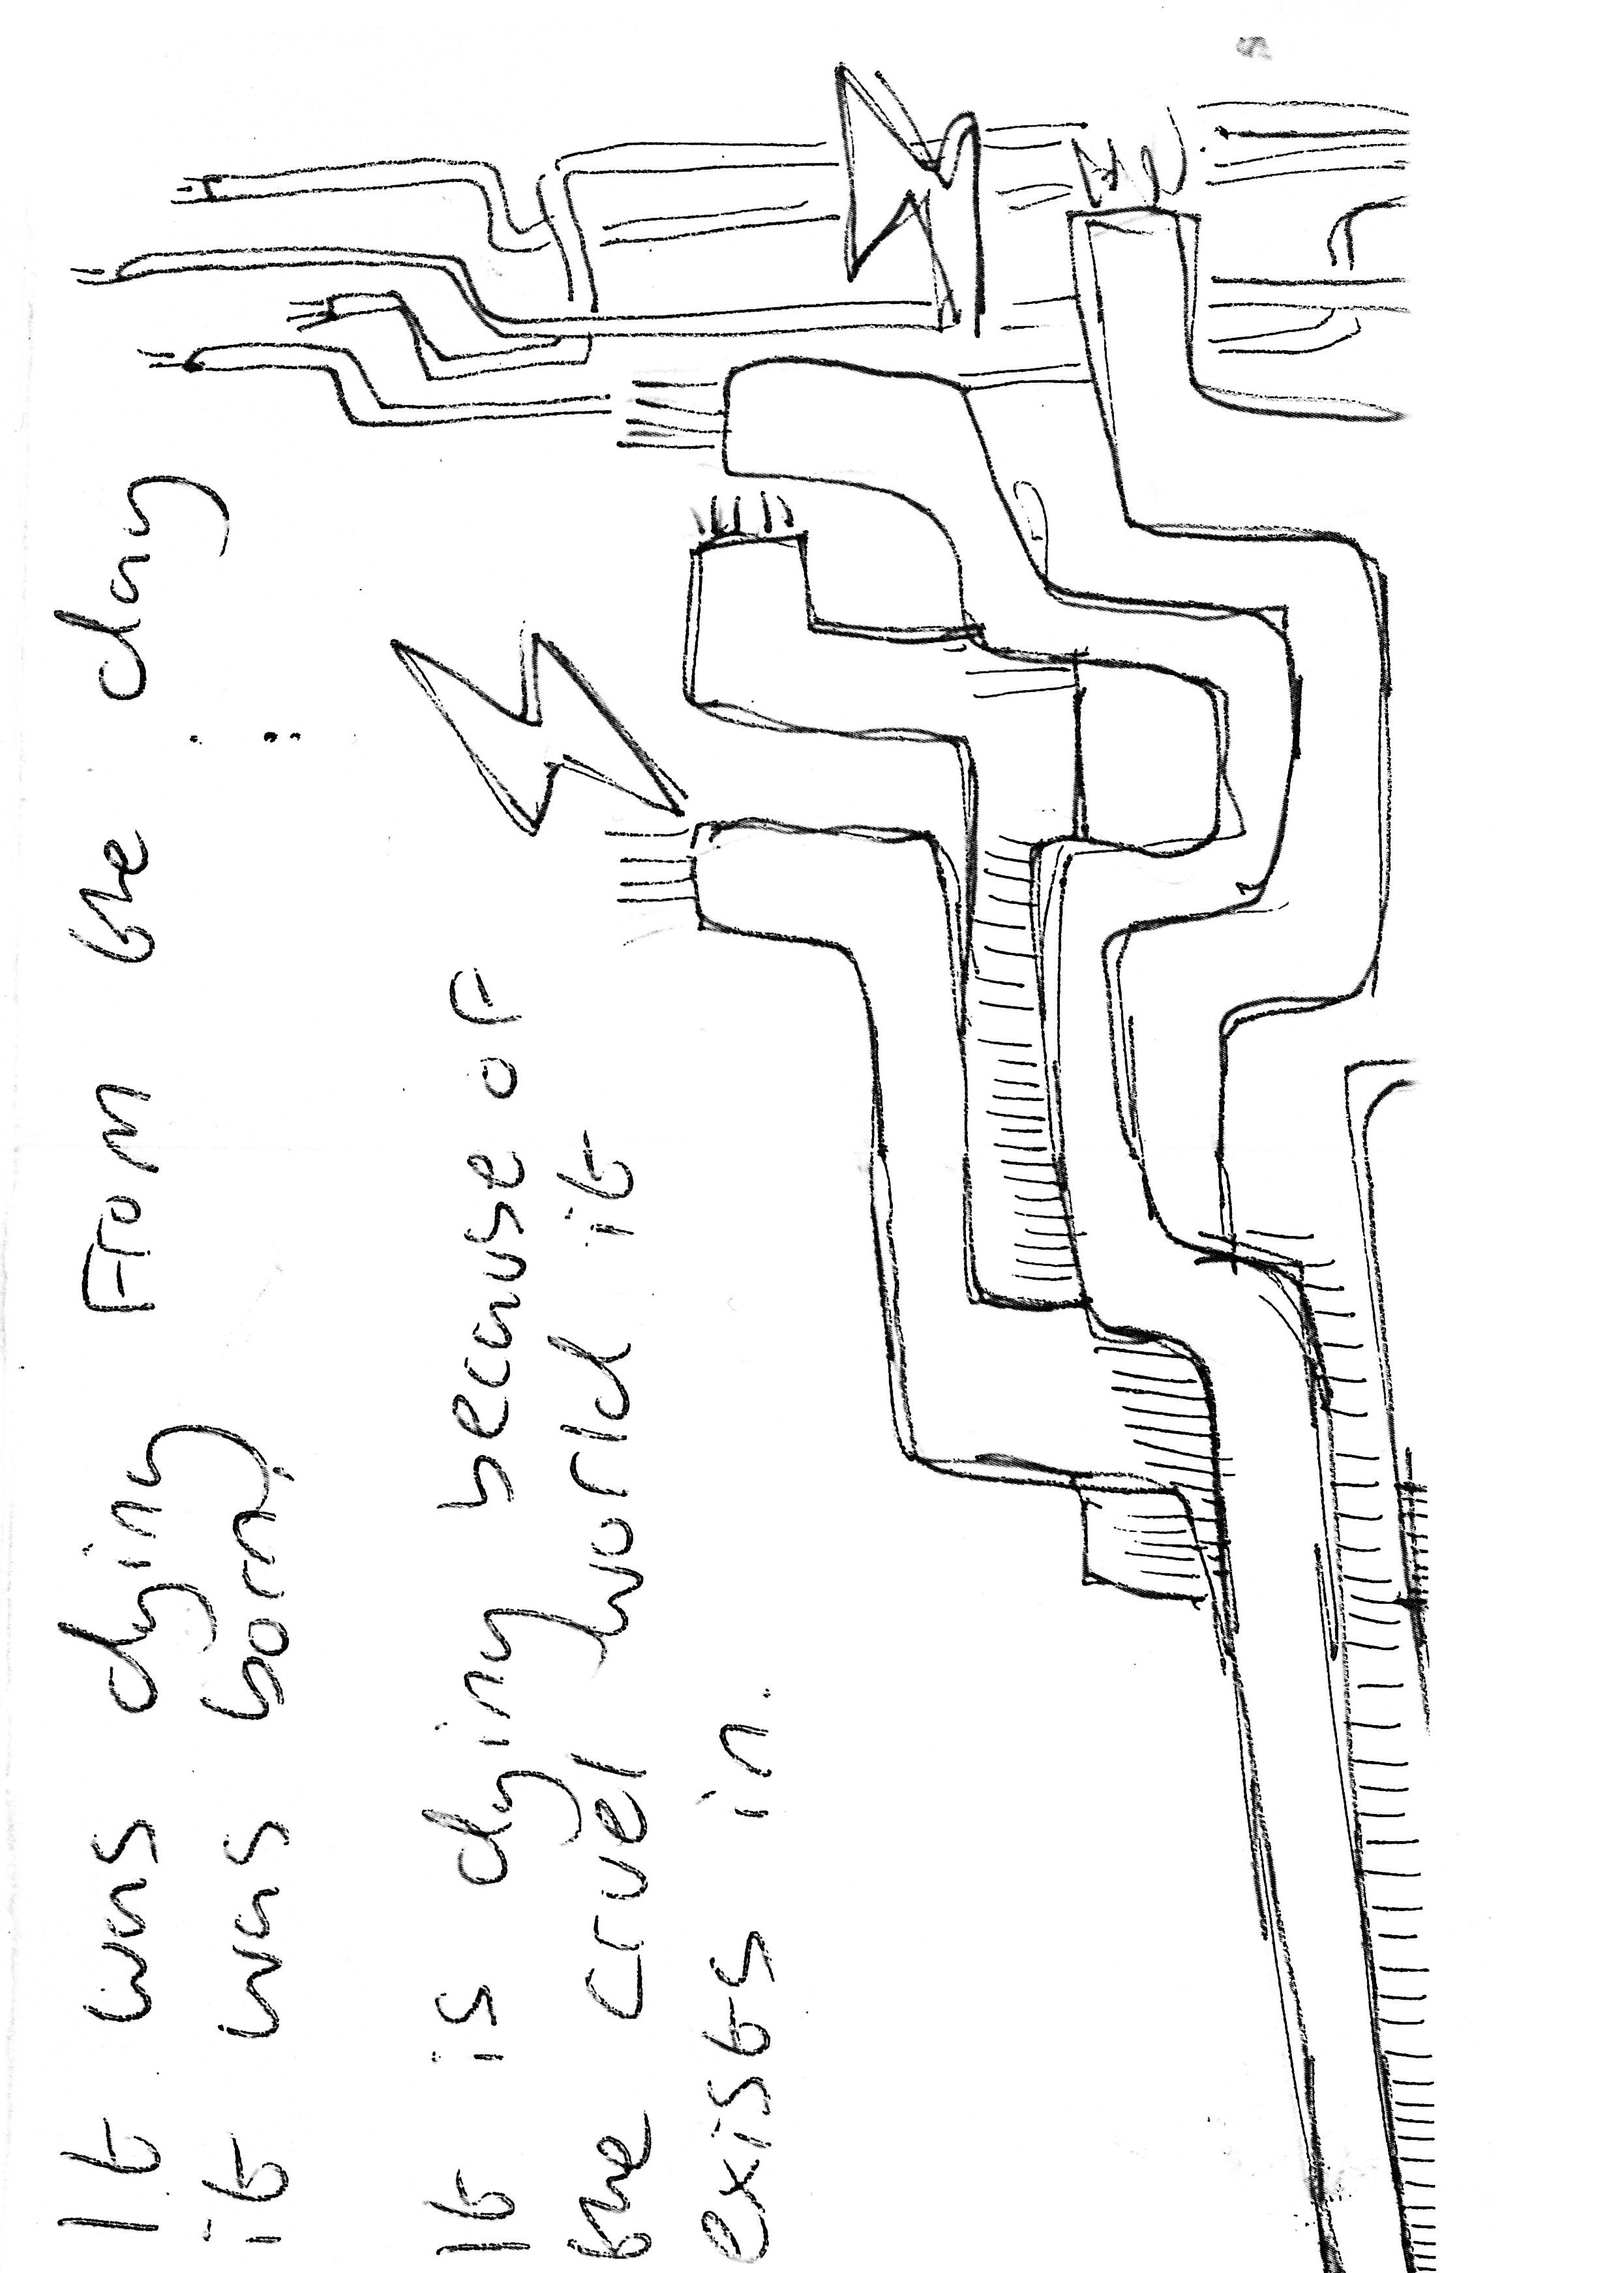 It was dying from the day
it was born;
It is dying because of
the cruel world it
exists in.